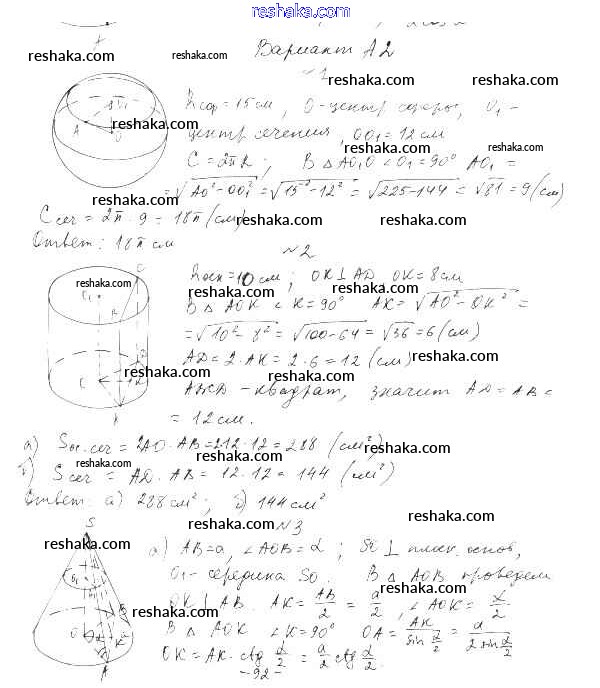 www.reshaka.com
reshaka.com reshaka.com reshaka.com
Вариант А2
№1
reshaka.com reshaka.com
Rсф = 15 см, О-центр сферы, O₁-
reshaka.com
центр сечения, OO₁ = 12 см
reshaka.com
C = 2πR; В △AO₁O ∠O₁ = 90° AO₁ =
reshaka.com
= √AO²-OO₁² = √15²-12² = √225-144 = √81 = 9 (см)
Cсеч = 2π · 9 = 18π (см)
reshaka.com reshaka.com
Ответ: 18π см
№2
reshaka.com
Rосн = 10 см; OK⊥AD OK = 8 см
reshaka.com reshaka.com
В △AOK ∠K = 90° AK = √AO²-OK² =
= √10²-8² = √100-64 = √36 = 6 (см)
AD = 2·AK = 2·6 = 12 (см)
reshaka.com
reshaka.com reshaka.com
ABCD - квадрат, значит AD = AB =
= 12 см.
а) Sос.сеч = 2AD·AB = 2·12·12 = 288 (см²)
reshaka.com reshaka.com
б) Sсеч = AD·AB = 12·12 = 144 (см²)
reshaka.com
Ответ: а) 288 см²; б) 144 см²
reshaka.com №3 reshaka.com
reshaka.com
а) AB = a, ∠AOB = α; SO ⊥ плоск. основ,
O₁-середина SO. В △AOB проведем
reshaka.com
OK⊥AB. AK = AB/2 = a/2, ∠AOK = α/2.
reshaka.com
В △AOK ∠K = 90° OA = AK/sin α/2 = a/2 sin α/2
reshaka.com
OK = AK·ctg α/2 = a/2 ctg α/2.
-92-
reshaka.com